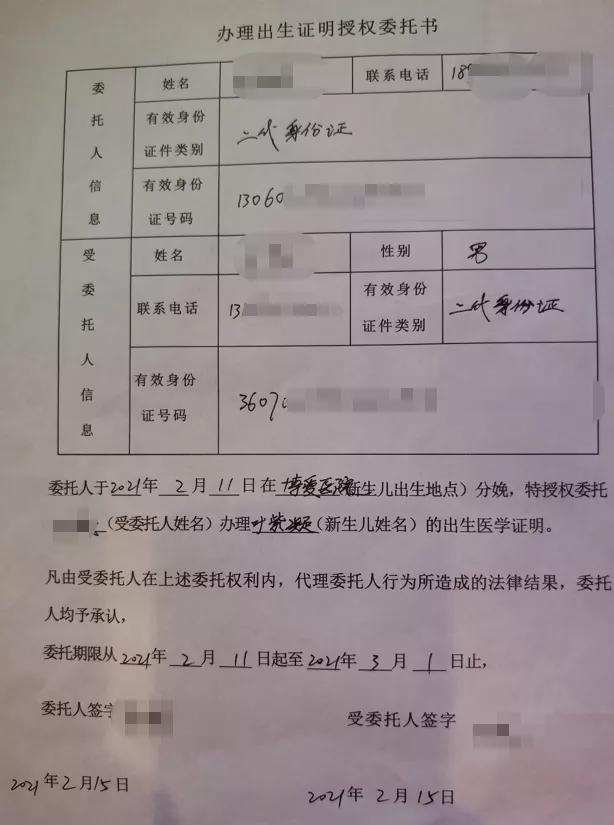 办理出生证明授权委托书
委托人信息
姓名
联系电话 18
有效身份证件类别 二代身份证
有效身份证号码 13060
受委托人信息
姓名
性别 男
联系电话 13
有效身份证件类别 二代身份证
有效身份证号码 3607
委托人于2021年2月11日在博爱医院新生儿出生地点）分娩，特授权委托
（受委托人姓名）办理叶紫凝（新生儿姓名）的出生医学证明。
凡由受委托人在上述委托权利内，代理委托人行为所造成的法律结果，委托
人均予承认，
委托期限从2021年2月11日起至2021年3月1日止，
委托人签字
受委托人签字
2021年2月15日
2021年2月15日